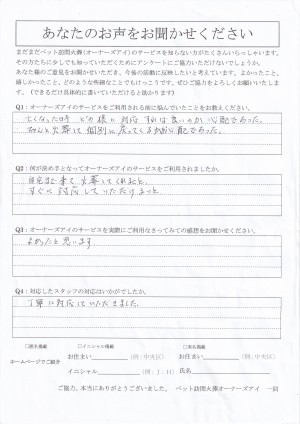 あなたのお声をお聞かせください
まだまだペット訪問火葬(オーナーズアイ)のサービスを知らない方がたくさんいらっしゃいます。
その方たちに少しでも知っていただくためにアンケートにご協力いただけないでしょうか。
あなた様のご意見をお聞かせいただき、今後の活動に反映したいと考えています。よかったこと、
嬉しかったこと、どのような些細なことでもけっこうです。ぜひご協力をよろしくお願いいたしま
す。(できるだけ具体的に書いていただけると助かります)
Q1：オーナーズアイのサービスをご利用される前に悩んでいたことをお教えください。
亡くなった時 どの様に対応すれば良いのか心配であった。
ちゃんと火葬して個別に戻ってくるかが心配であった。
Q2：何が決め手となってオーナーズアイのサービスをご利用されましたか。
自宅まで来て火葬してくれること、
すぐに対応していただけること
Q3：オーナーズアイのサービスを実際にご利用なさってみての感想をお聞かせください。
よかったと思います
Q4：対応したスタッフの対応はいかがでしたか。
丁寧に対応していただきました。
□匿名掲載 □イニシャル掲載 □実名掲載
ホームページでご紹介
お住まい (例：中央区) お住まい (例：中央区)
イニシャル (例：J．H) 氏名
ご協力、本当にありがとうございました。 ペット訪問火葬オーナーズアイ 一同